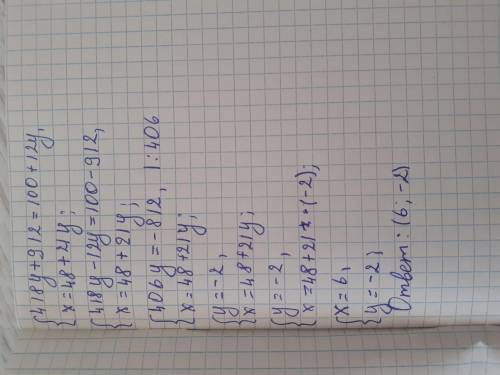 {418y+912=100+12y,
{x=48+21y;
{418y-12y=100-912,
{x=48+21y;
{406y=-812, |:406
{x=48+21y;
{y=-2,
{x=48+21y;
{y=-2,
{x=48+21*(-2);
{x=6,
{y=-2;
Ответ: (6; -2)